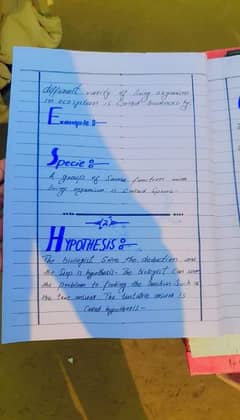 different variety of living organism
in ecosystem is called biodiversity.
Example:-
Specie:-
A group of same function and
living organism is called specie.
(2)
HYPOTHESIS:-
The biologist the deduction and
the step is hypothesis. The biologist can
the problem to finding the such is
the answer. The tentative answer is
called hypothesis-